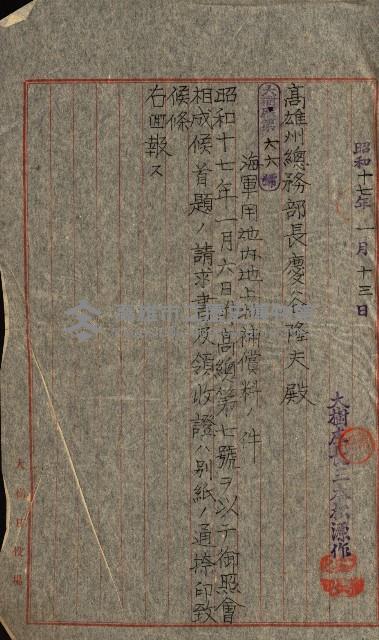 昭和十七年一月十三日
大樹庄長三
源作
高雄州總務部長慶谷隆夫殿
大樹庄
六六號
海軍用地內地上補償料ノ件
昭和十七年一月六日
高總第七號ヲ以テ御照會
相成候首題ノ請求書及領收證ハ別紙ノ通捺印致
候條
右回報ス
大樹庄役場